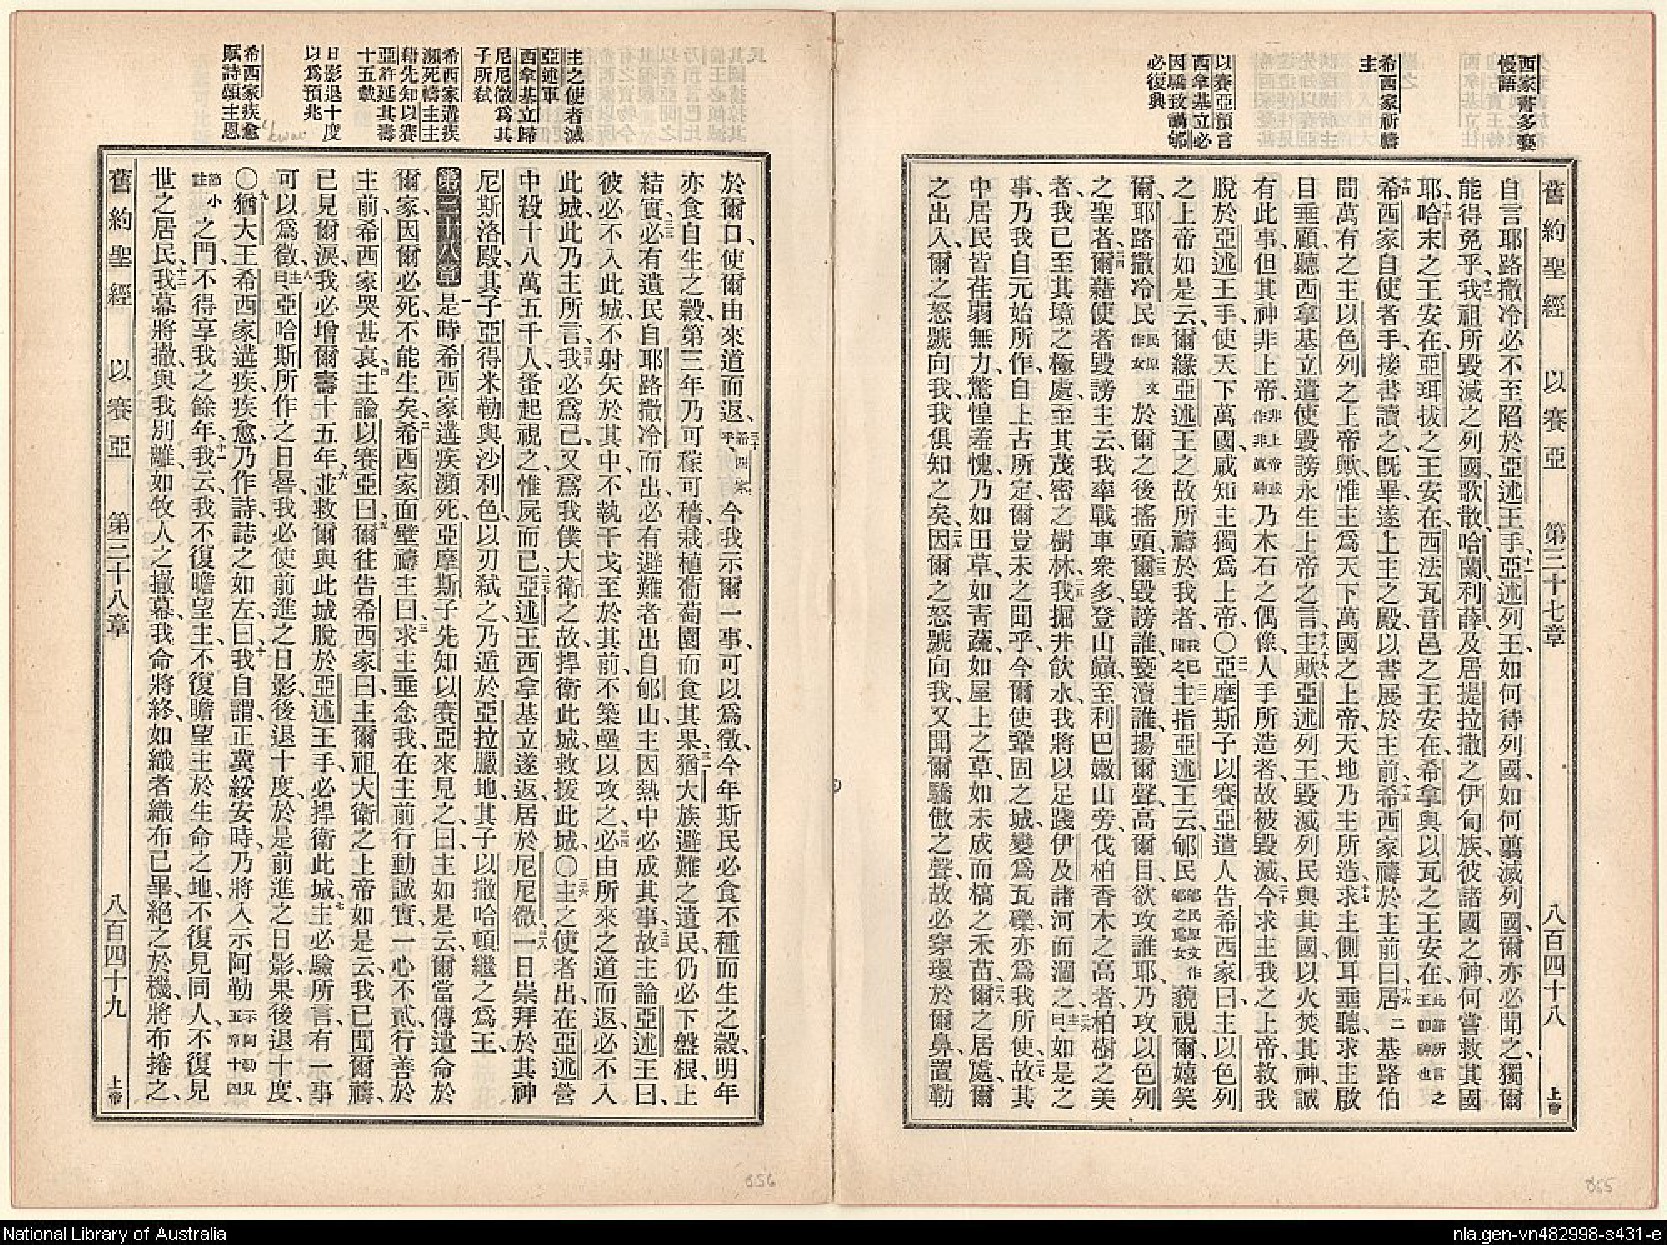 西家書多褻
慢語
希西家祈禱
主
以賽亞預言
西拿基立必
因驕致譴郇
必復興
舊約聖經 以賽亞 第三十七章 八百四十八 上帝
自言耶路撒冷必不至陷於亞述王手、十一亞述列王如何待列國、如何翦滅列國、爾亦必聞之、獨爾
能得免乎、十二我祖所毀滅之列國、歌散、哈蘭、利薛、及居提拉撒之伊甸族、彼諸國之神、何嘗救其國
耶、十三哈末之王安在、亞珥拔之王安在、西法瓦音邑之王安在、希拿與以瓦之王安在、此節所言之王卽神也
十四希西家自使者手、接書讀之、旣畢、遂上主之殿、以書展於主前、十五希西家禱於主前曰、十六居二基路伯
間萬有之主、以色列之上帝歟、惟主爲天下萬國之上帝、天地乃主所造、十七求主側耳垂聽、求主啟
目垂顧、聽西拿基立遣使毀謗永生上帝之言、十八十九主歟、亞述列王、毀滅列民與其國、以火焚其神、誠
有此事、但其神非上帝、非上帝或作非眞神乃木石之偶像、人手所造者、故被毀滅、二十今求主我之上帝、救我
脫於亞述王手、使天下萬國、咸知主獨爲上帝、〇二一亞摩斯子以賽亞、遣人告希西家曰、主以色列
之上帝如是云、爾緣亞述王之故、所禱於我者、我已聞之、二二主指亞述王云、郇民郇民原文作郇之處女藐視爾、嬉笑
爾、耶路撒冷民民原文作女於爾之後搖頭、二三爾毀謗誰、褻瀆誰、揚爾聲、高爾目、欲攻誰耶、乃攻以色列
之聖者、二四爾藉使者毀謗主云、我率戰車衆多、登山巔、至利巴嫩山旁、伐柏香木之高者、柏樹之美
者、我已至其境之極處、至其茂密之樹林、二五我掘井飲水、我將以足踐伊及諸河而涸之、二六主曰、如是之
事、乃我自元始所作、自上古所定、爾豈未之聞乎、今爾使鞏固之城、變爲瓦礫、亦爲我所使、二七故其
中居民、皆荏弱無力、驚惶羞愧、乃如田草、如靑蔬、如屋上之草、如未成而槁之禾苗、二八爾之居處、爾
之出入、爾之怒號向我、我俱知之矣、二九因爾之怒號向我、又聞爾驕傲之聲、故必穿環於爾鼻、置勒
主之使者滅
亞述軍
西拿基立歸
尼尼微爲其
子所弒
希西家遘疾
瀕死禱主主
藉先知以賽
亞許延其壽
十五載
日影退十度
以爲預兆
希西家疾愈
賦詩頌主恩
於爾口、使爾由來道而返、三十希西家乎、今我示爾一事、可以爲徵、今年斯民必食不種而生之穀、明年
亦食自生之穀、第三年乃可稼可穡、栽植葡萄園而食其果、三一猶大族避難之遺民、仍必下盤根、上
結實、三二必有遺民自耶路撒冷而出、必有避難者出自郇山、主因熱中必成其事、三三故主論亞述王曰、
彼必不入此城、不射矢於其中、不執干戈至於其前、不築壘以攻之、三四必由所來之道而返、必不入
此城、此乃主所言、三五我必爲己、又爲我僕大衛之故、捍衛此城、救援此城、〇三六主之使者出、在亞述營
中殺十八萬五千人、蚤起視之、惟屍而已、三七亞述王西拿基立遂返、居於尼尼微、三八一日崇拜於其神
尼斯洛殿、其子亞得米勒與沙利色以刃弒之、乃遁於亞拉臘地、其子以撒哈頓繼之爲王、
第三十八章 一是時希西家遘疾瀕死、亞摩斯子先知以賽亞來見之曰、主如是云、爾當傳遺命於
爾家、因爾必死、不能生矣、二希西家面壁禱主曰、三求主垂念我在主前行動誠實、一心不貳、行善於
主前、希西家哭甚哀、四主諭以賽亞曰、五爾往告希西家曰、主爾祖大衛之上帝如是云、我已聞爾禱、
已見爾淚、我必增爾壽十五年、六並救爾與此城、脫於亞述王手、必捍衛此城、七主必驗所言、有一事
可以爲徵、八主曰、亞哈斯所作之日晷、我必使前進之日影、後退十度、於是前進之日影、果後退十度、
〇九猶大王希西家遘疾、疾愈、乃作詩誌之如左、曰、十我自謂正冀綏安時、乃將入示阿勒示阿勒見五章十四
節小註之門、不得享我之餘年、十一我云、我不復瞻望主、不復瞻望主於生命之地、不復見同人、不復見
世之居民、十二我幕將撤、與我別離、如牧人之撤幕、我命將終、如織者織布已畢、絕之於機、將布捲之、
舊約聖經 以賽亞 第三十八章 八百四十九 上帝
856
855
National Library of Australia
nla.gen-vn482998-s431-e